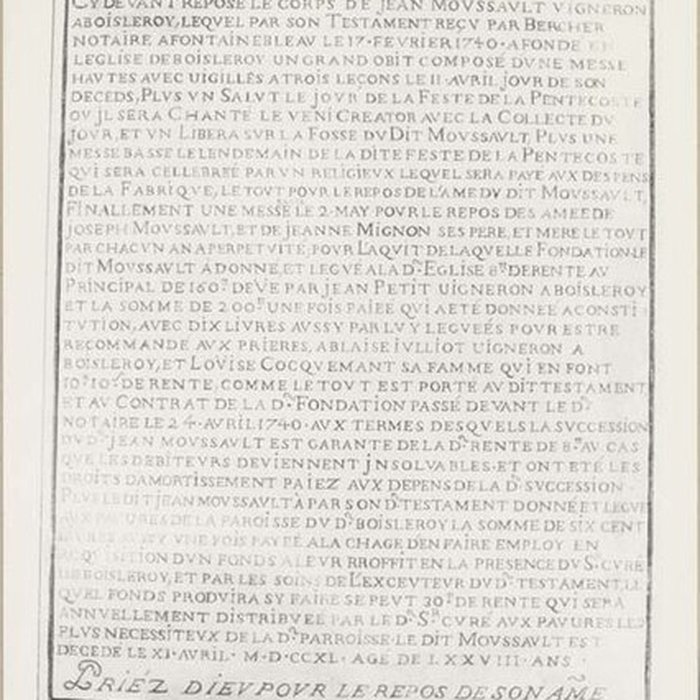 CY DEVANT REPOSE LE CORPS DE JEAN MOVSSAVLT VIGNERON
ABOISLEROY, LEQVEL PAR SON TESTAMENT REÇV PAR BERCHER
NOTAIRE AFONTAINEBLEAV LE 17·FEVRIER 1740·AFONDE EN
LEGLISE DE BOISLEROY UN GRAND OBIT COMPOSÉ DVNE MESSE
HAVTES AVEC UIGILLES ATROIS LEÇONS LE 11·AVRIL JOVR DE SON
DECEDS, PLVS VN SALVT LE JOVR DE LA FESTE DE LA PENTECOSTE
OV JL SERA CHANTÉ LE VENI CREATOR AVEC LA COLLECTE DV
JOVR, ET VN LIBERA SVR LA FOSSE DV DIT MOVSSAVLT, PLVS UNE
MESSE BASSE LE LENDEMAIN DE LA DITE FESTE DE LA PENTECOSTE
QVI SERA CELLEBREE PAR VN RELIGIEVX LEQVEL SERA PAYE AVX DESPENS
DE LA FABRIQVE, LE TOVT POVR LE REPOS DE L'AME DV DIT MOVSSAVLT,
FINALLEMENT UNE MESSE LE 2·MAY POVR LE REPOS DES AMEE DE
JOSEPH MOVSSAVLT, ET DE JEANNE MIGNON SES PERE, ET MERE LE TOVT
PAR CHACVN AN A PERPETVITÉ, POVR L'AQVIT DE LAQVELLE FONDATION LE
DIT MOVSSAVLT A DONNÉ, ET LEGVÉ A LA D.^e EGLISE 8^tt DE RENTE AV
PRINCIPAL DE 160^tt DEVE PAR JEAN PETIT UIGNERON A BOISLEROY
ET LA SOMME DE 200^tt UNE FOIS PAIEE QVI A ETÉ DONNEE A CONSTI
TVTION, AVEC DIX LIVRES AVSSY PAR LVY LEGVEES POVR ESTRE
RECOMMANDE AVX PRIERES, A BLAISE IVLLIOT UIGNERON A
BOISLEROY, ET LOVISE COCQVEMANT SA FAMME QVI EN FONT
10^tt 10^s DE RENTE, COMME LE TOVT EST PORTÉ AV DIT TESTAMENT
ET AV CONTRAT DE LA D.^e FONDATION PASSÉ DEVANT LE D.^t
NOTAIRE LE 24·AVRIL 1740·AVX TERMES DESQVELS LA SVCCESSION
DV D.^t JEAN MOVSSAVLT EST GARANTE DE LA D.^e RENTE DE 8^tt AV CAS
QVE LES DEBITEVRS DEVIENNENT JNSOLVABLES·ET ONT ETÉ LES
DROITS DAMORTISSEMENT PAIEZ AVX DEPENS DE LA D.^e SVCCESSION·
PLVS LE DIT JEAN MOVSSAVLT À PAR SON D.^t TESTAMENT DONNÉ ET LEGVÉ
AVX PAVURES DE LA PAROISSE DV D.^t BOISLEROY LA SOMME DE SIX CENT
LIVRES AVSSY VNE FOIS PAYÉE A LA CHAGE DEN FAIRE EMPLOY EN
ACQVISITION DVN FONDS A LEVR RROFFIT EN LA PRESENCE DV S.^r CVRÉ
DE BOISLEROY, ET PAR LES SOINS DE L'EXCEVTEVR DV D.^t TESTAMENT, LE
QVEL FONDS PRODVIRA SY FAIRE SE PEVT 30^tt DE RENTE QVI SERA
ANNVELLEMENT DISTRIBVEE PAR LE D.^t S.^r CVRE AVX PAVURES LES
PLVS NECESSITEVX DE LA D.^e PARROISSE·LE DIT MOVSSAVLT EST
DECEDÉ LE XI·AVRIL·M·D·CCXL·AGÉ DE LXXVIII·ANS·
PRIÉZ DIEV POVR LE REPOS DE SON AM̃E